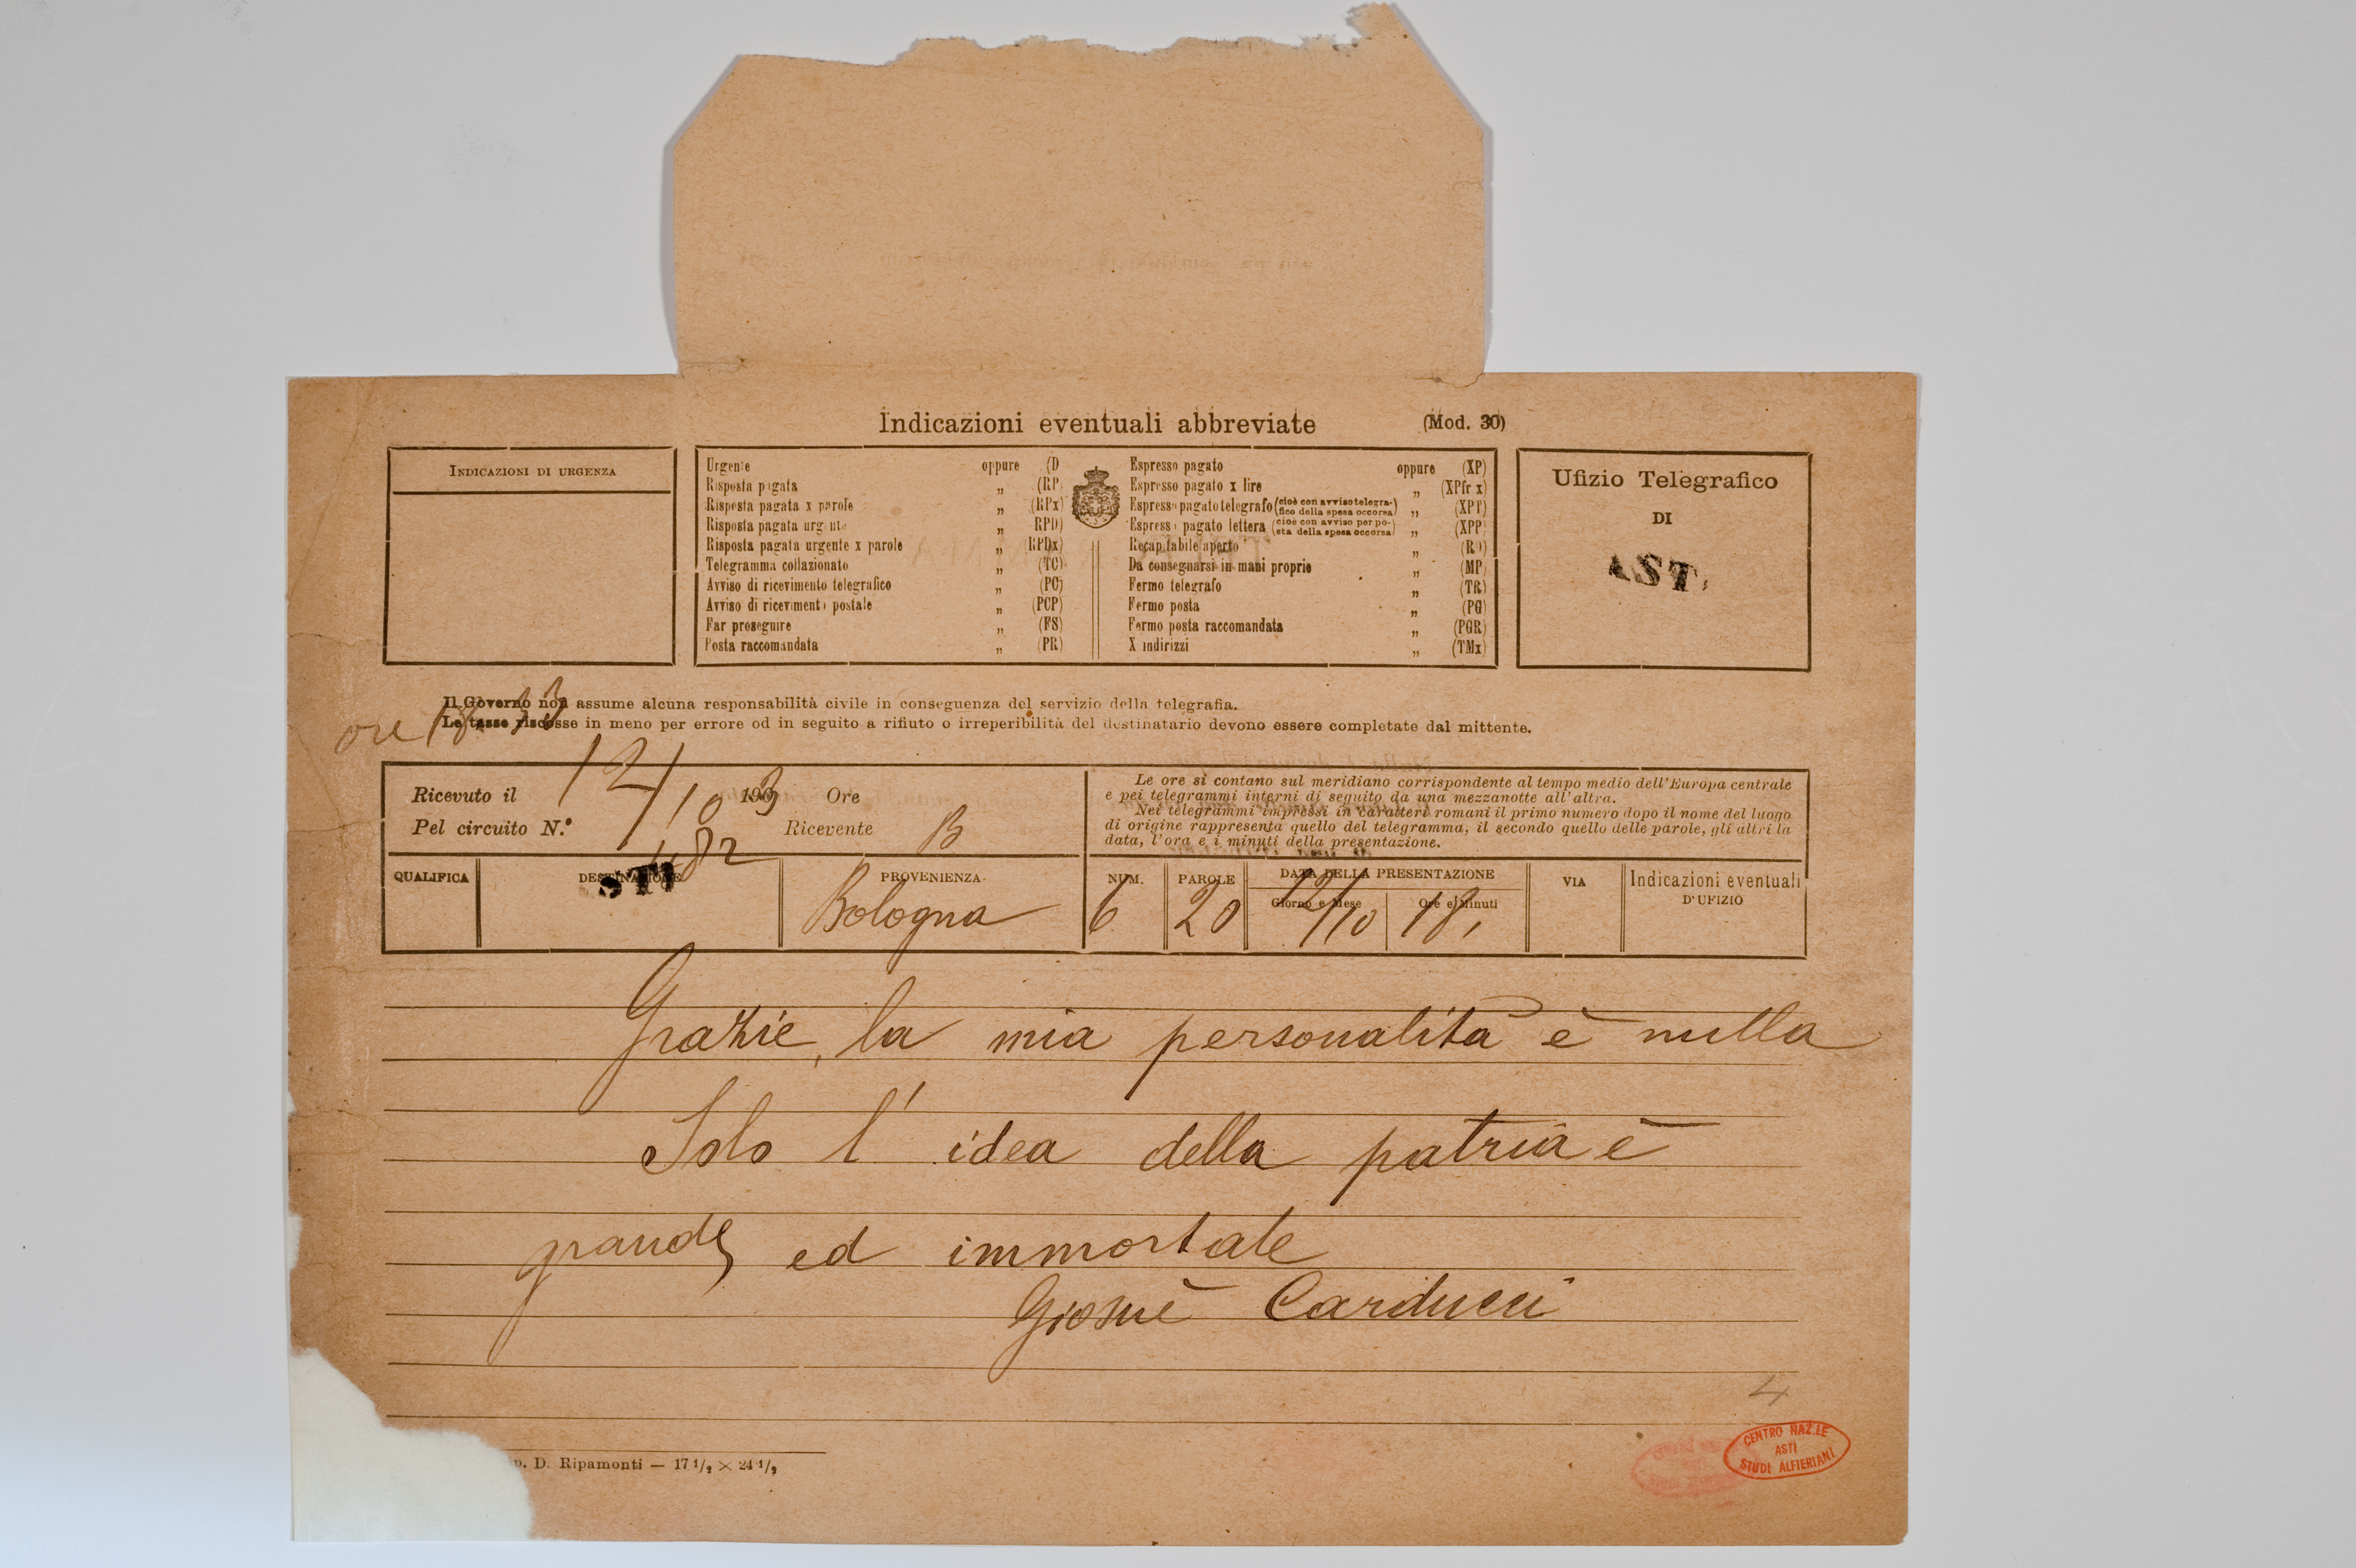 Indicazioni eventuali abbreviate (Mod. 30)
INDICAZIONI DI URGENZA
Urgente oppure (D
Risposta pagata „ (RP)
Risposta pagata x parole „ (RPx)
Risposta pagata urgente „ RPD)
Risposta pagata urgente x parole „ (RPDx)
Telegramma collazionato „ (TC)
Avviso di ricevimento telegrafico „ (PC)
Avviso di ricevimento postale „ (PCP)
Far proseguire „ (FS)
Posta raccomandata „ (PR)
Espresso pagato oppure (XP)
Espresso pagato x lire „ (XPfr x)
Espresso pagato telegrafo (cioè con avviso telegra-
fico della spesa occorsa) „ (XPT)
Espresso pagato lettera (cioè con avviso per po-
sta della spesa occorsa) „ (XPP)
Recapitabile aperto „ (RO)
Da consegnarsi in mani proprie „ (MP)
Fermo telegrafo „ (TR)
Fermo posta „ (PG)
Fermo posta raccomandata „ (PGR)
X indirizzi „ (TMx)
Ufizio Telegrafico
DI
AST
Il Governo non assume alcuna responsabilità civile in conseguenza del servizio della telegrafia.
Le tasse riscosse in meno per errore od in seguito a rifiuto o irreperibilità del destinatario devono essere completate dal mittente.
ore
Ricevuto il 12/10 1903 Ore
Pel circuito N.° 182 Ricevente B
Le ore si contano sul meridiano corrispondente al tempo medio dell'Europa centrale
e pei telegrammi interni di seguito da una mezzanotte all'altra.
Nei telegrammi impressi in caratteri romani il primo numero dopo il nome del luogo
di origine rappresenta quello del telegramma, il secondo quello delle parole, gli altri la
data, l'ora e i minuti della presentazione.
QUALIFICA DESTINAZIONE PROVENIENZA NUM. PAROLE DATA DELLA PRESENTAZIONE VIA Indicazioni eventuali
Giorno e Mese Ore e Minuti D'UFIZIO
STI Bologna 6 20 12/10 18,
Grazie, la mia personalità è nulla
Solo l' idea della patria è
grande ed immortale
Giosuè Carducci
4
p. D. Ripamonti — 17 1/2 × 24 1/2
CENTRO NAZ.LE
ASTI
STUDI ALFIERIANI